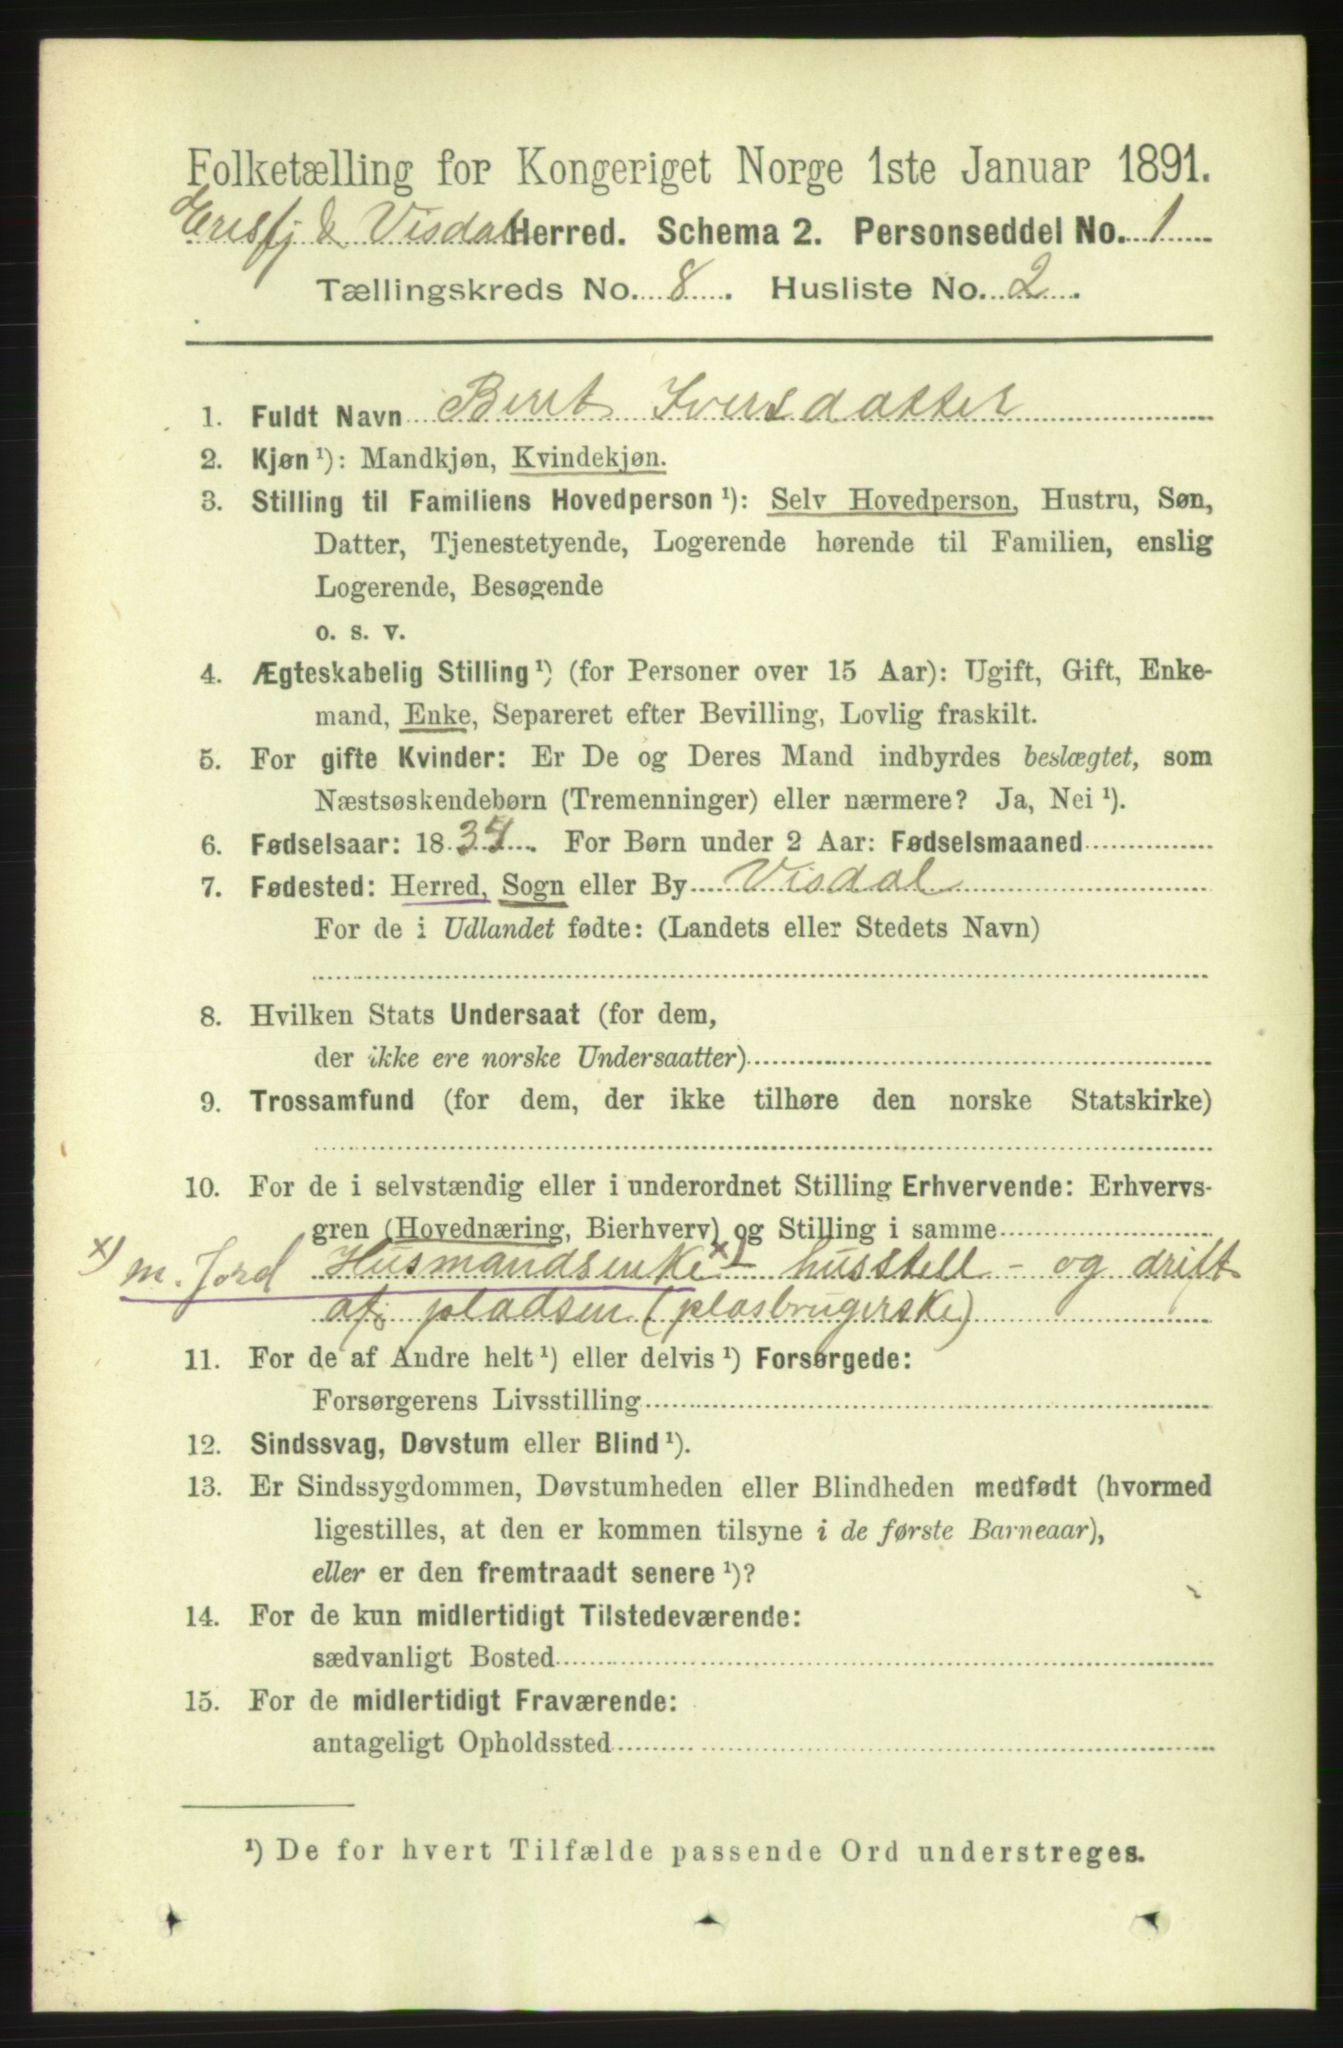 Folketælling for Kongeriget Norge 1ste Januar 1891.
Eresfj & Visdal Herred. Schema 2. Personseddel No. 1
Tællingskreds No. 8. Husliste No. 2.
1. Fuldt Navn Berit Iversdatter
2. Kjøn ¹): Mandkjøn, Kvindekjøn.
3. Stilling til Familiens Hovedperson ¹): Selv Hovedperson, Hustru, Søn,
Datter, Tjenestetyende, Logerende hørende til Familien, enslig
Logerende, Besøgende
o. s. v.
4. Ægteskabelig Stilling ¹) (for Personer over 15 Aar): Ugift, Gift, Enke-
mand, Enke, Separeret efter Bevilling, Lovlig fraskilt.
5. For gifte Kvinder: Er De og Deres Mand indbyrdes beslægtet, som
Næstsøskendebørn (Tremenninger) eller nærmere? Ja, Nei ¹).
6. Fødselsaar: 1834. For Børn under 2 Aar: Fødselsmaaned
7. Fødested: Herred, Sogn eller By Visdal
For de i Udlandet fødte: (Landets eller Stedets Navn)
8. Hvilken Stats Undersaat (for dem,
der ikke ere norske Undersaatter)
9. Trossamfund (for dem, der ikke tilhøre den norske Statskirke)
10. For de i selvstændig eller i underordnet Stilling Erhvervende: Erhvervs-
gren (Hovednæring, Bierhverv) og Stilling i samme
x) m. Jord Husmandsenke x) husstell - og drift
af pladsen (plasbrugerske)
11. For de af Andre helt ¹) eller delvis ¹) Forsørgede:
Forsørgerens Livsstilling
12. Sindssvag, Døvstum eller Blind ¹).
13. Er Sindssygdommen, Døvstumheden eller Blindheden medfødt (hvormed
ligestilles, at den er kommen tilsyne i de første Barneaar),
eller er den fremtraadt senere ¹)?
14. For de kun midlertidigt Tilstedeværende:
sædvanligt Bosted
15. For de midlertidigt Fraværende:
antageligt Opholdssted
¹) De for hvert Tilfælde passende Ord understreges.